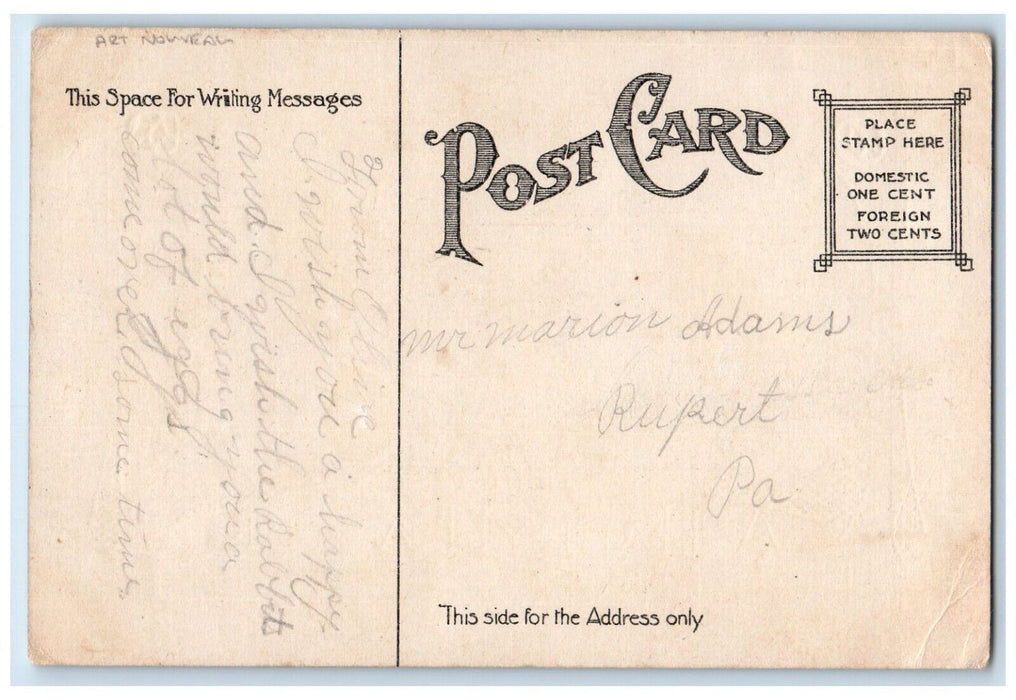 ART NOUVEAU
This Space For Writing Messages
From Olive
I wish you a happy
and I wish the Rabbits
would bring you a
lot of eggs.
come over some time.
POST CARD
PLACE
STAMP HERE
DOMESTIC
ONE CENT
FOREIGN
TWO CENTS
mr marion Adams
Rupert
Pa
This side for the Address only